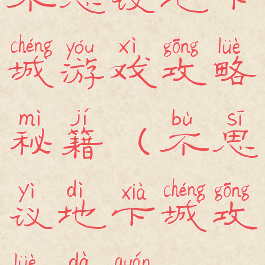 chéng yóu xì gōng lüè
城游戏攻略
mì jí bù sī
秘籍（不思
yì dì xià chéng gōng
议地下城攻
lüè dà quán